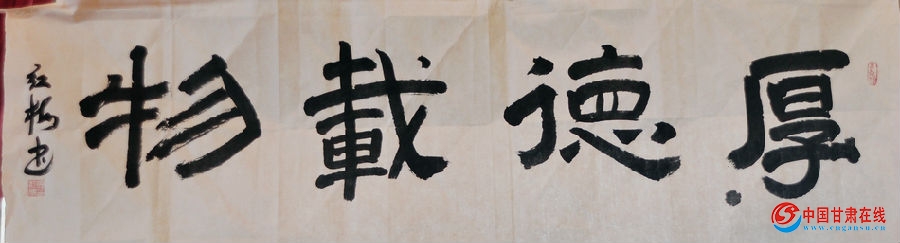 厚德載物
中国甘肃在线
www.cngansu.cn